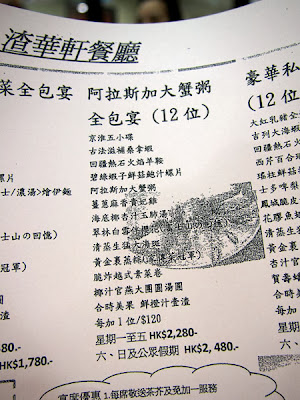 渣華軒餐廳
菜全包宴
螺片
士/濃湯>燴伊麵
士山の回憶)
冠軍)
580
K$1,780.-
阿拉斯加大蟹粥
全包宴 (12 位)
京淮五小碟
古法滋補桑拿蝦
回疆熱石火焰羊鞍
碧綠蝦子鮮菇鮑汁螺片
阿拉斯加大蟹粥
薑蔥麻香貴妃雞
海底椰杏汁玉肺湯
翠林白雲伴櫻花
清蒸生猛大海斑
黃金裏蒸粽
脆炸越式素菜卷
椰汁官燕大團圓湯圓
合時美果 鮮橙汁壹渣
每加 1 位/$120
星期一至五 HK$2,280-
六、日及公眾假期 HK$2,480.-
豪華私
(12 位
大紅乳豬全
吉列大海蝦
回疆熱石火
西芹百合
瑤柱鮮菇
士多啤梨
鳳城脆皮
花膠魚
清蒸生
黃金裏
杏汁官
賀壽
合時
每加
星期
六、
宴席優惠 1.每席敬送茶芥及免加一服務